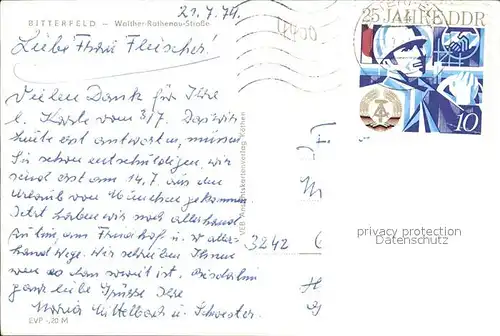 21.7.74.
BITTERFELD – Walther-Rathenau-Straße
Liebe Frau Fleischer!
Vielen Dank für Ihre
l. Karte vom 3/7. Das wir
heute erst antworten, müssen
Sie schon entschuldigen, wir
sind erst am 14.7. aus den
Urlaub von München gekommen.
Jetzt haben wir noch allerhand
zu tun, am Friedhof u. v aller-
hand Wege. Wir schreiben Ihnen
wenn es dann soweit ist. Bis dahin
ganz liebe Grüsse Ihre
Maria Mittelbach u. Schwester.
EVP -,20 M
VEB Ansichtskartenverlag Köthen
25 JAHRE DDR
10
3242
privacy protection
Datenschutz